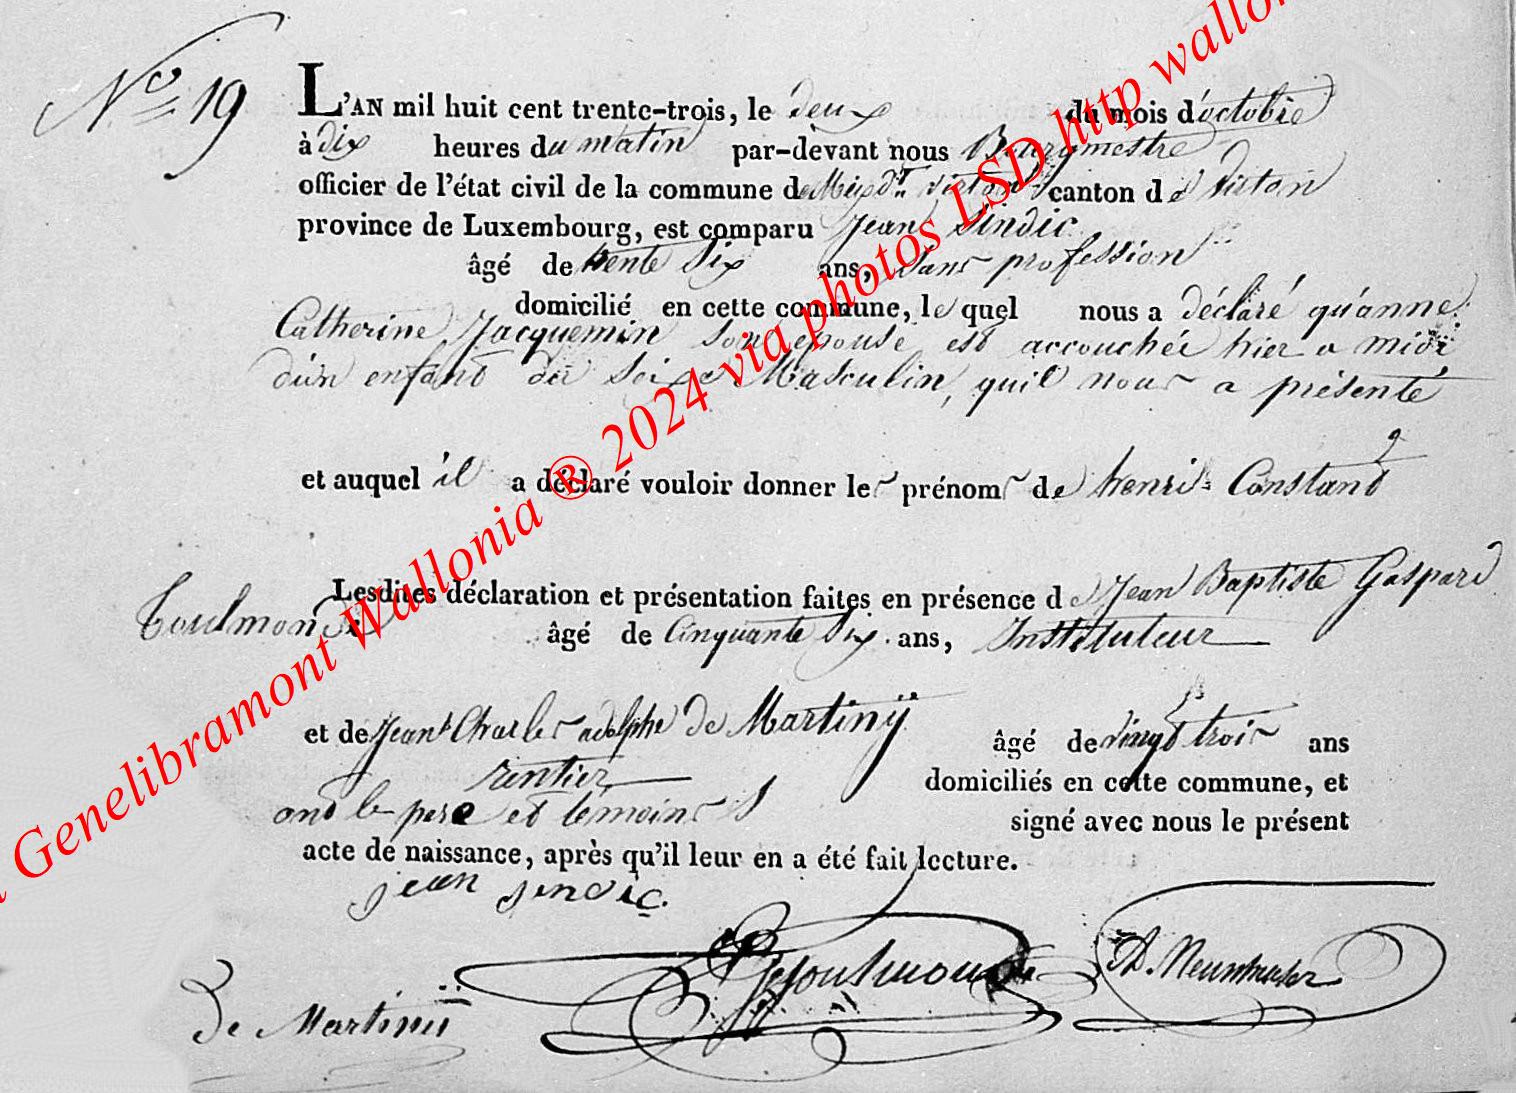 N° 19
L'AN mil huit cent trente-trois, le deux du mois d'octobre
à dix heures du matin par-devant nous Bourgmestre
officier de l'état civil de la commune de Meix dt virton canton de Virton
province de Luxembourg, est comparu Jean Sindic
âgé de trente six ans, sans profession
domicilié en cette commune, le quel nous a déclaré qu'anne
Catherine Jacquemin son epouse est accouchée hier a midi
d'un enfant du sexe Masculin, qu'il nous a présenté
et auquel il a déclaré vouloir donner les prénoms de henri Constand
Lesdites déclaration et présentation faites en présence de Jean Baptiste Gaspard
Toulmonde âgé de Cinquante Six ans, Instituteur
et de Jean Charles adolphe de Martinÿ âgé de vingt trois ans
rentier domiciliés en cette commune, et
ont le pere et témoins signé avec nous le présent
acte de naissance, après qu'il leur en a été fait lecture.
jean sindic.
De Martinÿ Toulmonde
Genelibramont Wallonia ® 2024 via photos LSD http wallon